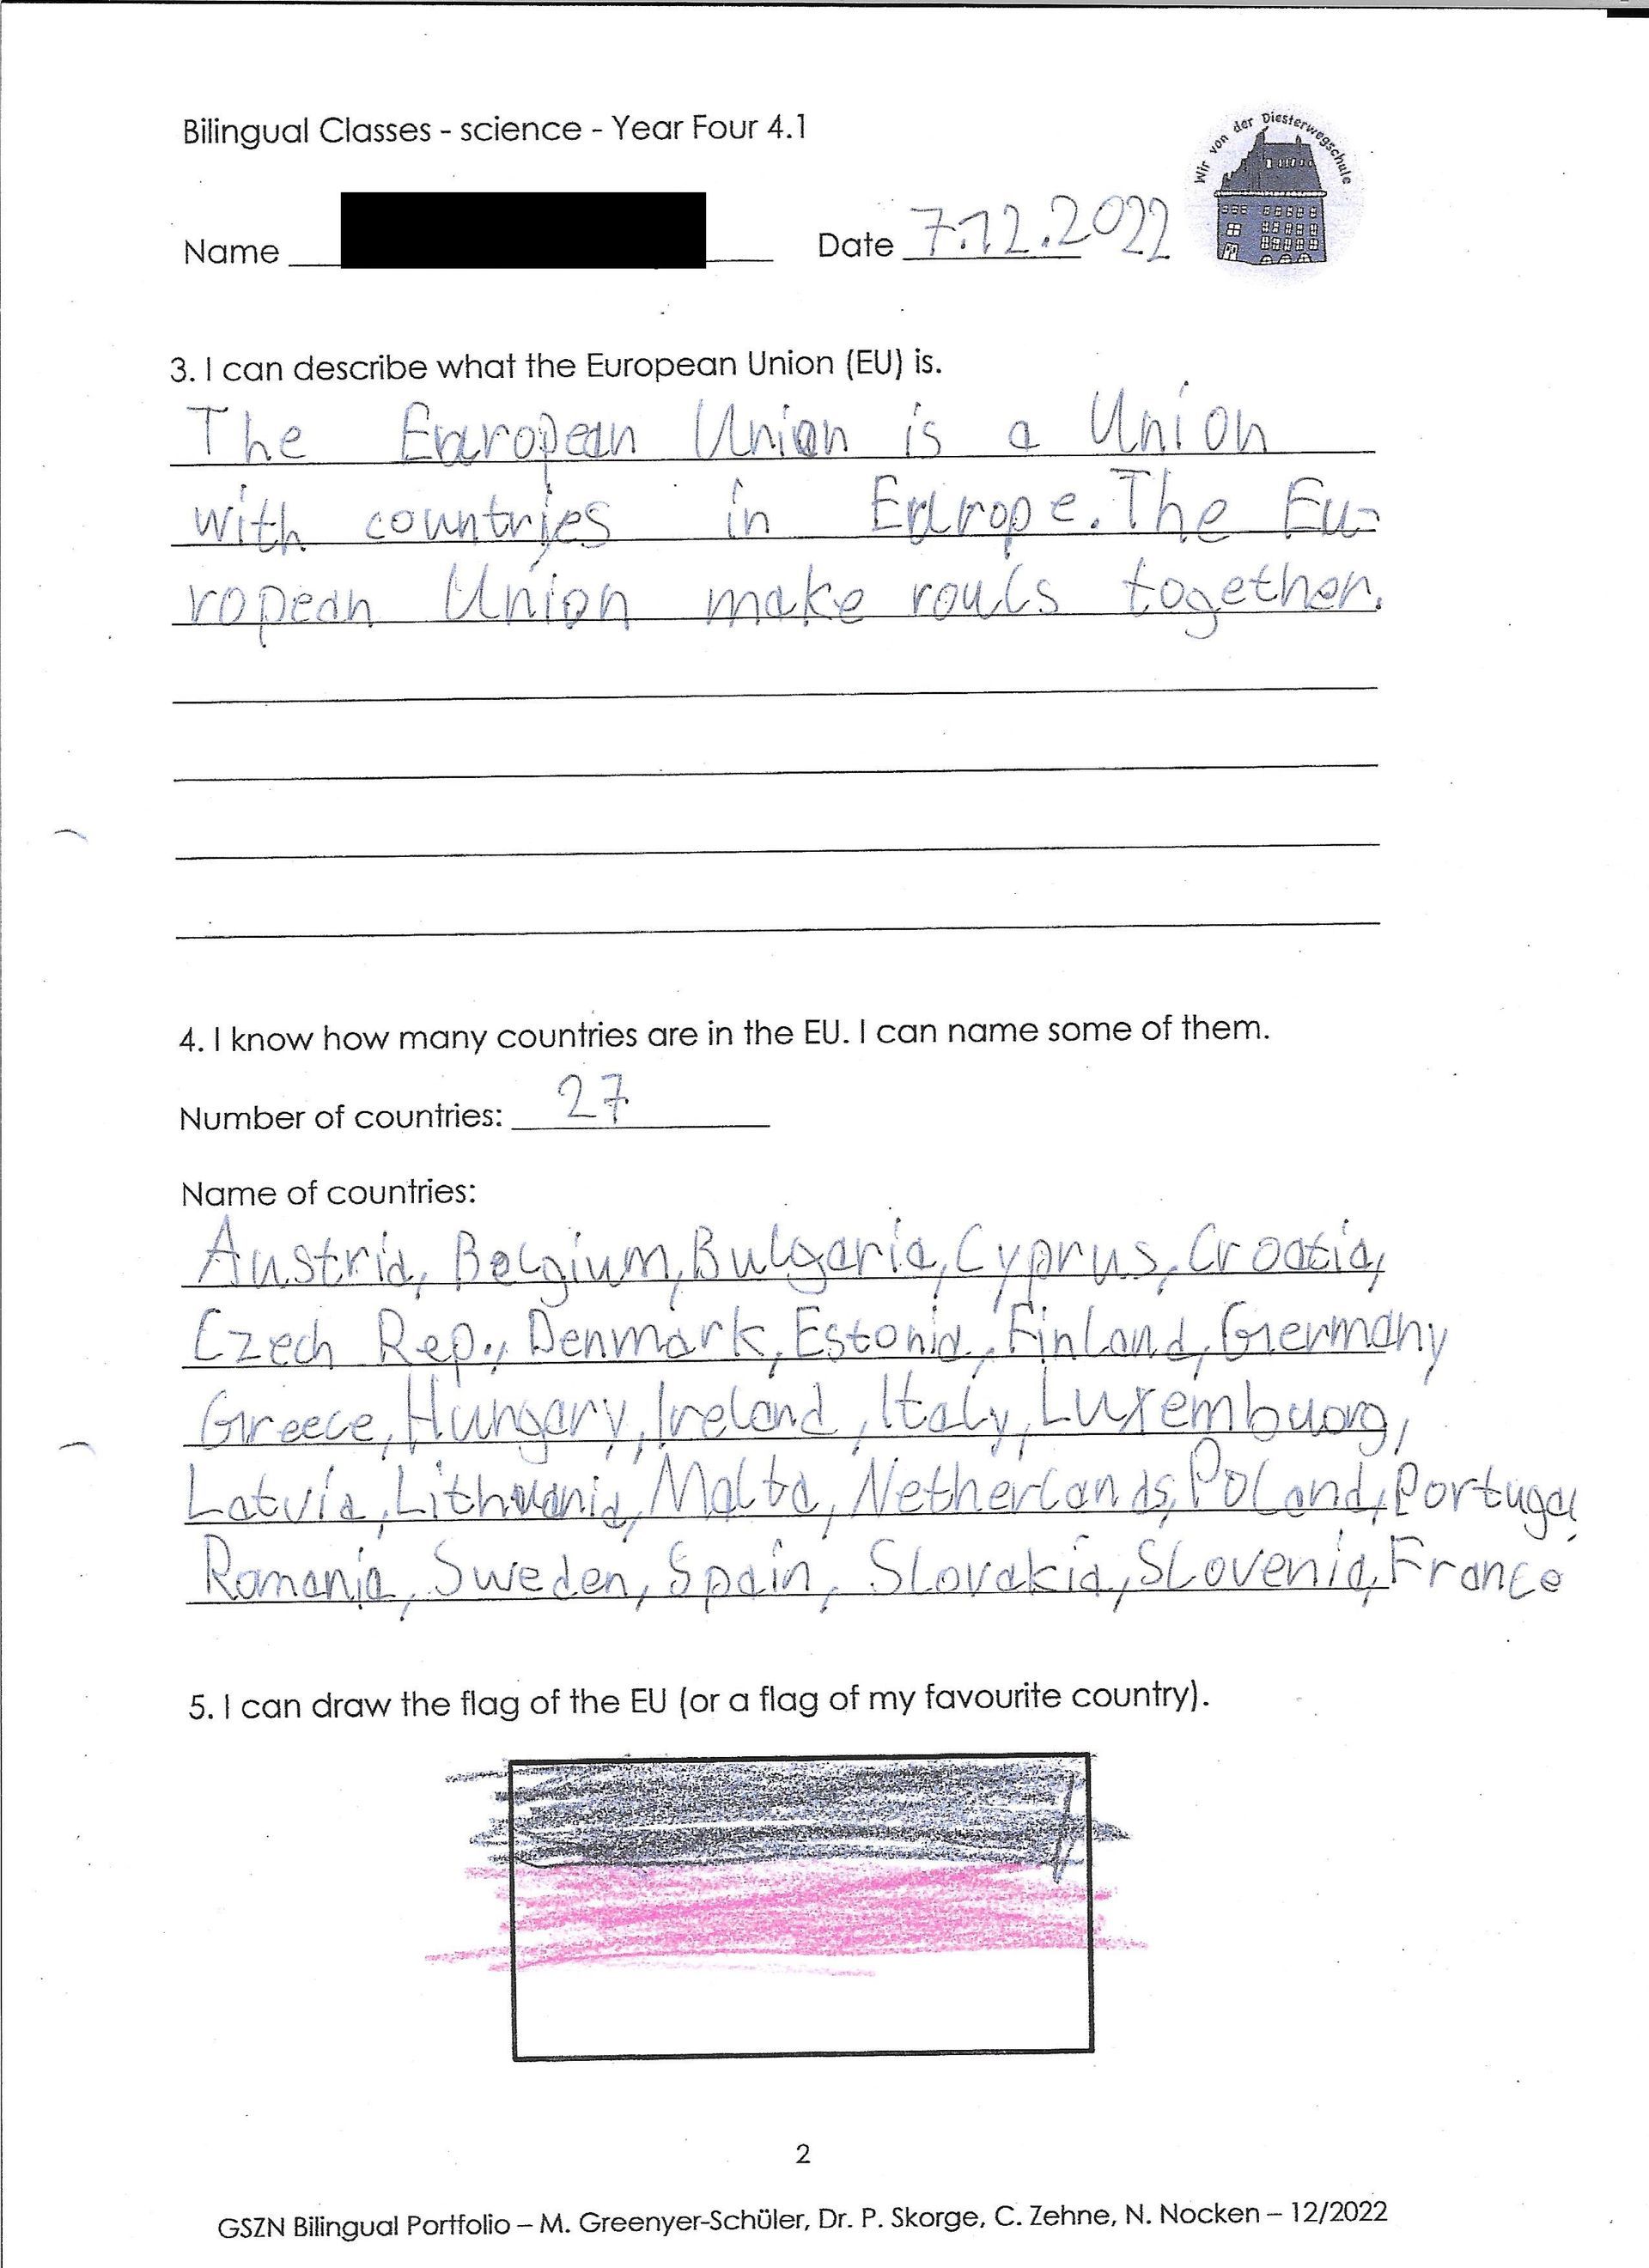 Bilingual Classes - science - Year Four 4.1
Wir von der Diesterwegschule
Name Date 7.12.2022
3. I can describe what the European Union (EU) is.
The European Union is a Union
with countries in Europe. The Eu-
ropean Union make rouls together.
4. I know how many countries are in the EU. I can name some of them.
Number of countries: 27
Name of countries:
Austria, Belgium, Bulgaria, Cyprus, Croatia,
Czech Rep., Denmark, Estonia, Finland, Germany
Greece, Hungary, Ireland, Italy, Luxembuorg,
Latvia, Lithuania, Malta, Netherlands, Poland, Portugal
Romania, Sweden, Spain, Slovakia, Slovenia, France
5. I can draw the flag of the EU (or a flag of my favourite country).
2
GSZN Bilingual Portfolio – M. Greenyer-Schüler, Dr. P. Skorge, C. Zehne, N. Nocken – 12/2022